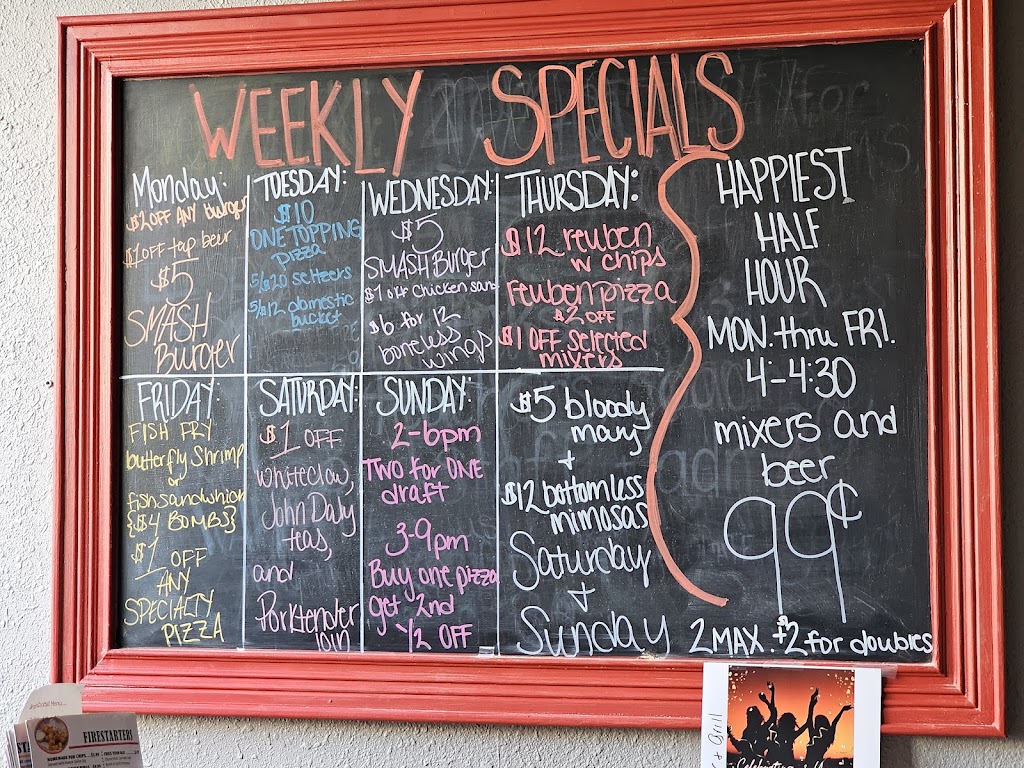 WEEKLY SPECIALS
Monday:
$2 OFF ANY burger
$1 OFF tap beer
$5
SMASH
Burger
TUESDAY:
$10
ONE TOPPING
pizza
5/$20 seltzers
5/$12 domestic
bucket
WEDNESDAY:
$5
SMASH Burger
$1 off chicken sand
$6 for 12
boneless
wings
THURSDAY:
$12 reuben
w chips
reuben pizza
$2 OFF
$1 OFF selected
mixers
FRIDAY:
FISH FRY
butterfly Shrimp
or
fish sandwhich
{$4 BOMBS}
$1 OFF
ANY
SPECIALTY
PIZZA
SATURDAY:
$1 OFF
whiteclaw,
John Daly
teas,
and
Porktender
loin
SUNDAY:
2-6pm
TWO for ONE
draft
3-9pm
Buy one pizza
get 2nd
1/2 OFF
$5 bloody
mary
+
$12 bottomless
mimosas
Saturday
+
Sunday
HAPPIEST
HALF
HOUR
MON. thru FRI.
4-4:30
mixers and
beer
99¢
2 MAX. +$2 for doubles
FIRESTARTERS
+ Grill